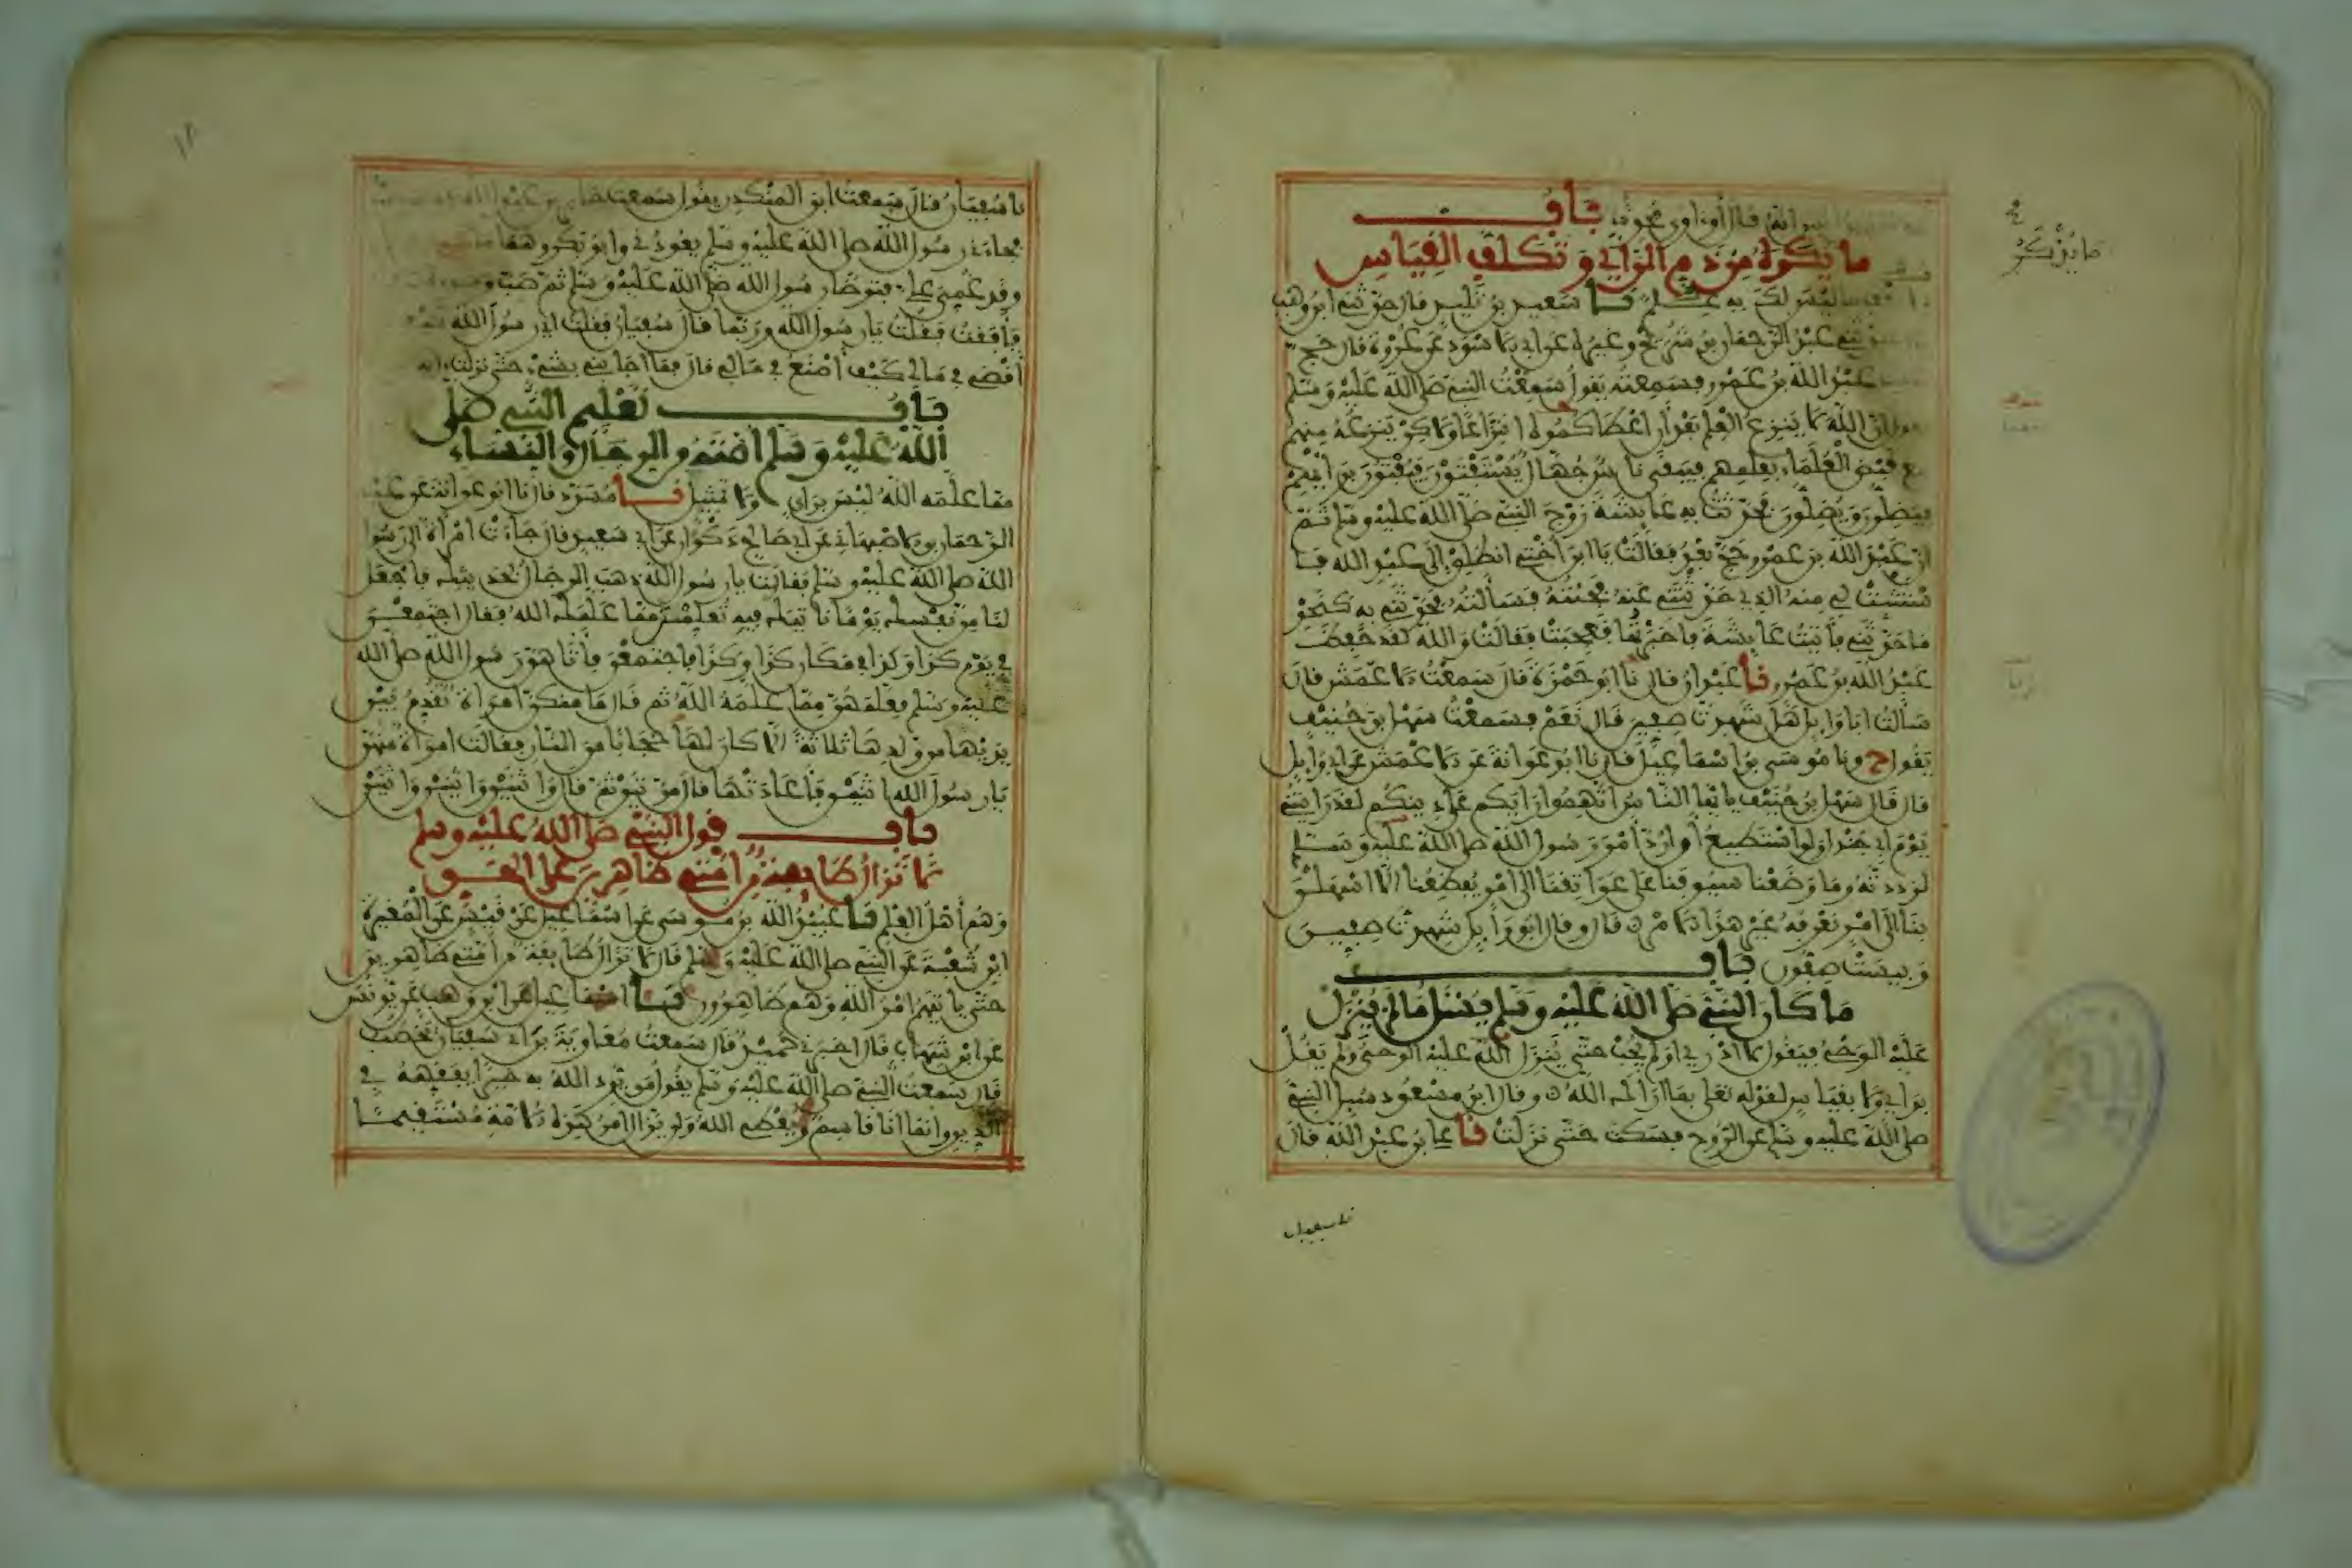 ما يذكر
انه قال أو اوى محدثا باب
ما يكره من ذم الراي وتكلف القياس
ما ليس لك به علم نا سعيد بن تليد قال حدثني ابن وهب
عبد الرحمان بن شريح وغيره عن ابي الاسود عن عروة قال حج
عبد الله بن عمرو فسمعته يقول سمعت النبي صلى الله عليه وسلم
يقول ان الله لا ينزع العلم بعد ان اعطاكموه انتزاعا ولاكن ينتزعه منهم
مع قبض العلماء بعلمهم فيبقى ناس جهال يستفتون فيفتون برايهم
فيضلون ويضلون فحدثت به عايشة زوج النبي صلى الله عليه وسلم ثم
ان عبد الله بن عمرو حج بعد فقالت يا ابن اختي انطلق الى عبد الله فا
ستثبت لي منه الذي حدثتني عنه فجئته فسالته فحدثني به كنحو
ما حدثني فأتيت عايشة فاخبرتها فعجبت فقالت والله لقد حفظ
عبد الله بن عمرو نا عبدان قال نا ابو حمزة قال سمعت الاعمش قال
سالت ابا وايل هل شهدت صفين قال نعم فسمعت سهل بن حنيف
يقول ح ونا موسى بن اسماعيل قال نا ابو عوانة عن الاعمش عن ابي وايل
قال قال سهل بن حنيف يا ايها الناس اتهموا رايكم على دينكم لقد رايتني
يوم ابي جندل ولو استطيع أن ارد أمر رسول الله صلى الله عليه وسلم
لرددته وما وضعنا سيوفنا على عواتقنا الى امر يفظعنا الا اسهلن
بنا الى امر نعرفه غير هذا الامر قال وقال ابو وايل شهدت صفين
وبيست صفون باب
ما كان النبي صلى الله عليه وسلم يسئل مما لم ينزل
عليه الوحي فيقول لا ادري او لم يجب حتى ينزل الله عليه الوحي ولم يقل
براي ولا بقياس لقوله تعلى بما اراك الله وقال ابن مسعود سيل النبي
صلى الله عليه وسلم عن الروح فسكت حتى نزلت نا علي بن عبد الله قال
نا سفيان
نا سفيان قال سمعت ابن المنكدر يقول سمعت جابر بن عبد الله
فجاءني رسول الله صلى الله عليه وسلم يعودني وابو بكر وهما
وقد غمي علي فتوضا رسول الله صلى الله عليه وسلم ثم صب
فأفقت فقلت يا رسول الله وربما قال سفيان فقلت اي رسول الله
أقضي في مالي كيف أصنع في مالي قال فما اجابني بشيء حتى نزلت اية
باب تعليم النبي صلى
الله عليه وسلم امته من الرجال والنساء
مما علمه الله ليس براي ولا تمثيل نا مسدد قال نا ابو عوانة عن عبد
الرحمان بن الاصبهاني عن ابي صالح ذكوان عن ابي سعيد قال جاءت امراة الى رسول
الله صلى الله عليه وسلم فقالت يا رسول الله ذهب الرجال بحديثك فاجعل
لنا من نفسك يوما نأتيك فيه تعلمنا مما علمك الله فقال اجتمعن
في يوم كذا وكذا في مكان كذا وكذا فاجتمعن فأتاهن رسول الله صلى الله
عليه وسلم فعلمهن مما علمه الله ثم قال ما منكن امراة تقدم بين
يديها من ولدها ثلاثة الا كان لها حجابا من النار فقالت امراة منهن
يا رسول الله اثنين فأعادتها مرتين ثم قال واثنين واثنين واثنين
باب قول النبي صلى الله عليه وسلم
لا تزال طايفة من امتي ظاهرين على الحق
وهم أهل العلم نا عبيد الله بن موسى عن اسماعيل عن قيس عن المغيرة
ابن شعبة عن النبي صلى الله عليه وسلم قال لا تزال طايفة من امتي ظاهرين
حتى ياتيهم امر الله وهم ظاهرون نا اسماعيل عن ابن وهب عن يونس
عن ابن شهاب قال اخبرني حميد قال سمعت معاوية بن ابي سفيان يخطب
قال سمعت النبي صلى الله عليه وسلم يقول من يرد الله به خيرا يفقهه في
الدين وانما انا قاسم ويعطي الله ولن يزال امر هذه الامة مستقيما